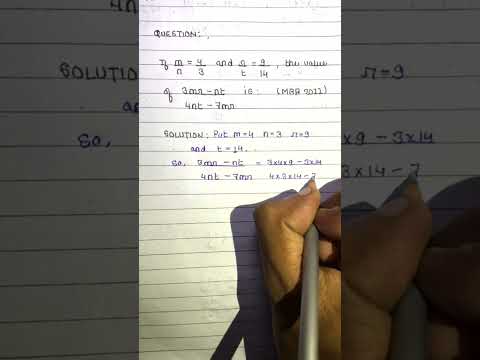 QUESTION:
If m/n = 4/3 and r/t = 9/14, the value
of 3mr - nt / 4nt - 7mr is: (MBA 2022)
SOLUTION: Put m=4 n=3 r=9
and t=14.
So, 3mr - nt / 4nt - 7mr = 3×4×9 - 3×14 / 4×3×14 - 7